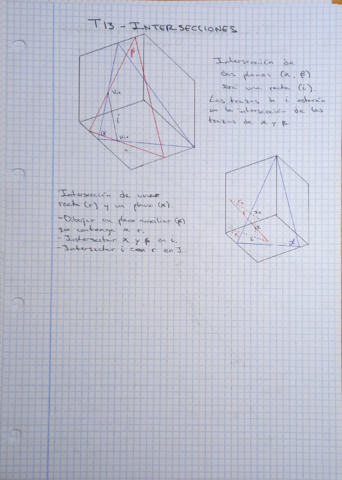 T13 - INTERSECCIONES
Intersección de
dos planos (α, β)
será una recta (i).
Las trazas de i estarán
en la intersección de las
trazas de α y β
Intersección de una
recta (r) y un plano (α).
- Dibujar un plano auxiliar (β)
que contenga a r.
- Intersectar α y β en i.
- Intersectar i con r en I.
β
i
α
α